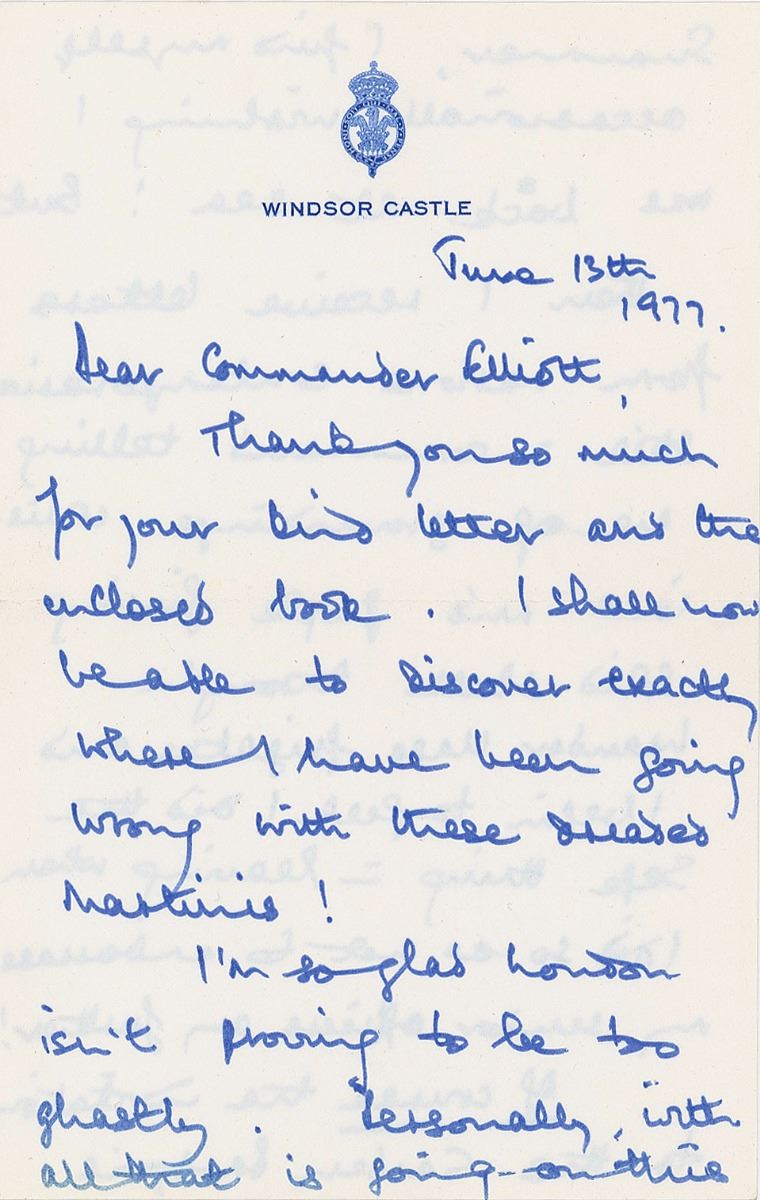 WINDSOR CASTLE
June 13th
1977.
Dear Commander Elliott,
Thank you so much
for your kind letter and the
enclosed book. I shall now
be able to discover exactly
where I have been going
wrong with these dreaded
Martinis!
I'm so glad London
isn't proving to be too
ghastly. Personally, with
all that is going on this